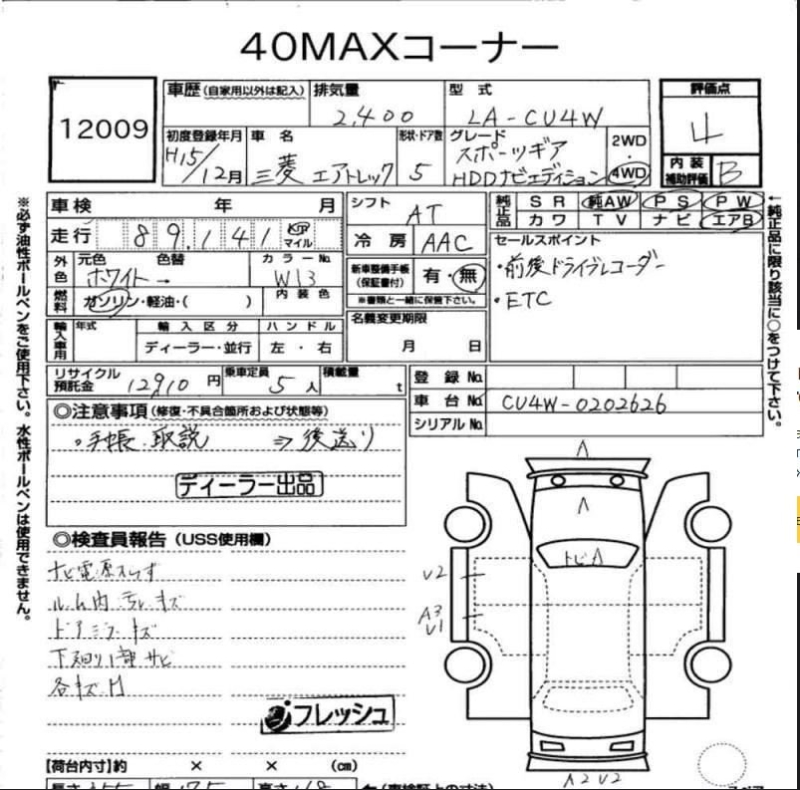 40MAXコーナー
12009
車歴 (自家用以外は記入)
排気量
2,400
型式
LA-CU4W
評価点
4
初度登録年月
H15/12月
車名
三菱 エアトレック
形状・ドア数
5
グレード
スポーツギア
HDDナビエディション
2WD
・
4WD
内装
補助評価
B
車検 年 月
シフト
AT
純正品
SR 純AW PS PW
カワ TV ナビ エアB
走行 89,141 km マイル
冷房
AAC
セールスポイント
・前後ドライブレコーダー
・ETC
外色
元色 色替 カラーNo.
ホワイト→ W13
新車整備手帳
(保証書付)
有・無
※書類と一緒に保管下さい。
燃料
ガソリン・軽油・( )
内装色
名義変更期限
月 日
輸入車用
年式
輸入区分
ハンドル
ディーラー・並行
左・右
リサイクル
預託金
12910 円
乗車定員
5 人
積載量
t
登録No.
車台No.
CU4W-0202626
シリアルNo.
◎注意事項 (修復・不具合箇所および状態等)
・手帳、取説 ⇒後送り
ディーラー出品
◎検査員報告 (USS使用欄)
ナビ電源入らず
ルーム内汚レキズ
ドアミラーキズ
下廻り1部サビ
フレッシュ
【荷台内寸】約 × × (cm)
長さ
幅
高さ
←(車検証上の寸法)
※必ず油性ボールペンをご使用下さい。水性ボールペンは使用できません。
←純正品に限り該当に○をつけて下さい。
A
A
トビA
U2
A3
U1
A2 U2